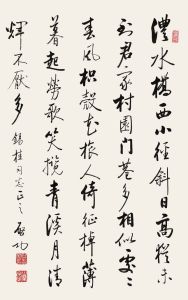 澧水橋西小徑斜日高猶未
到君家村園門巷多相似處〻
春風枳殼花旅人倚征棹薄
暮起勞歌笑攬青溪月清
輝不厭多 錫桂同志正之 啟功